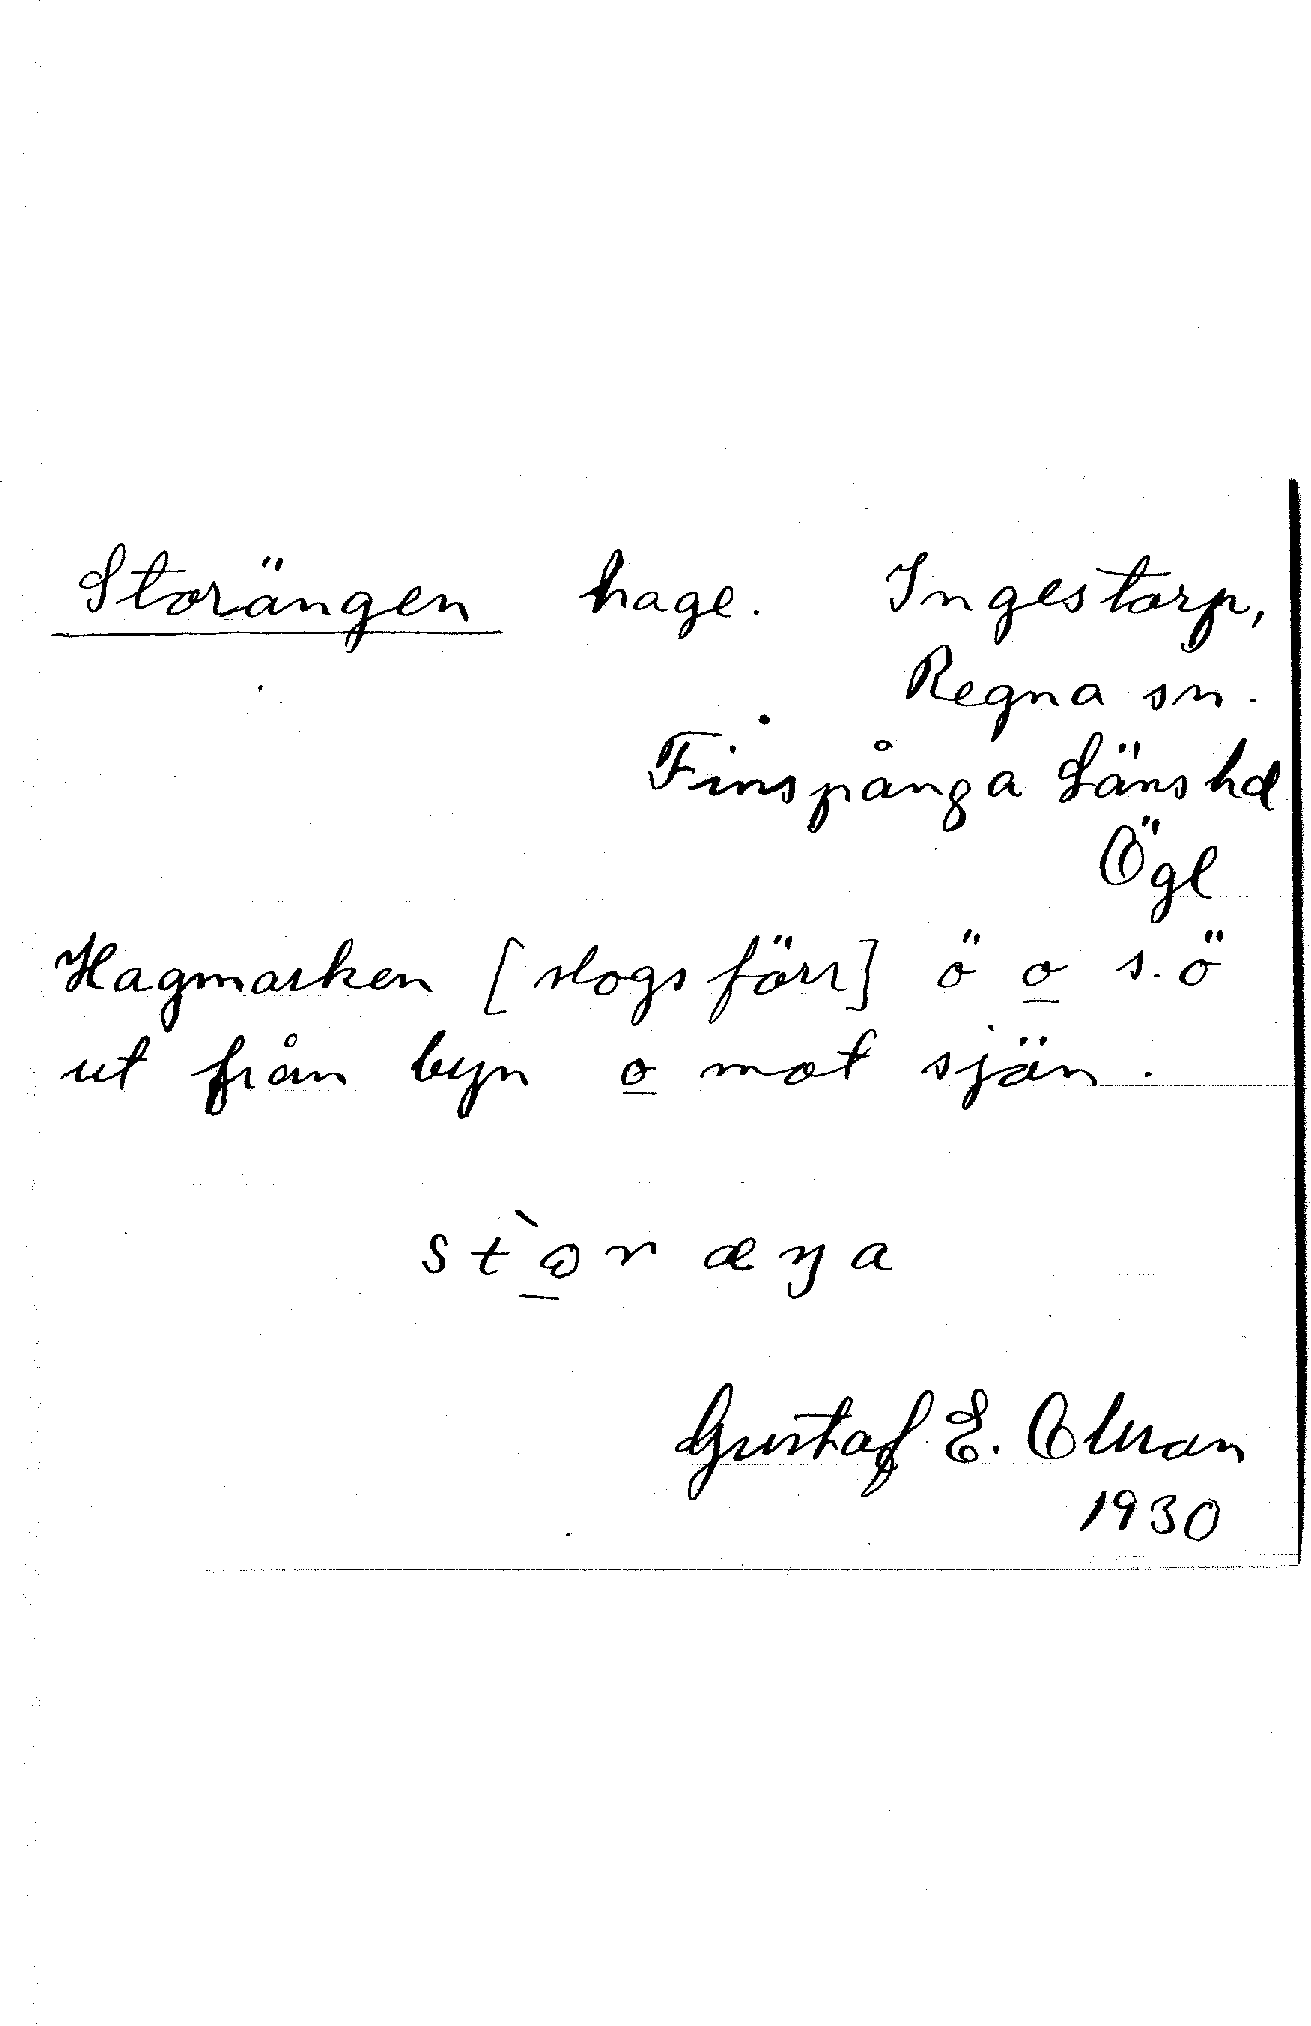 Storängen hage. Ingestorp,
Regna sn.
Finspånga Läns hd
Ögl
Hagmarken [slogs förr] ö o s.ö
ut från byn o mot sjön.
Gustaf E.
1930